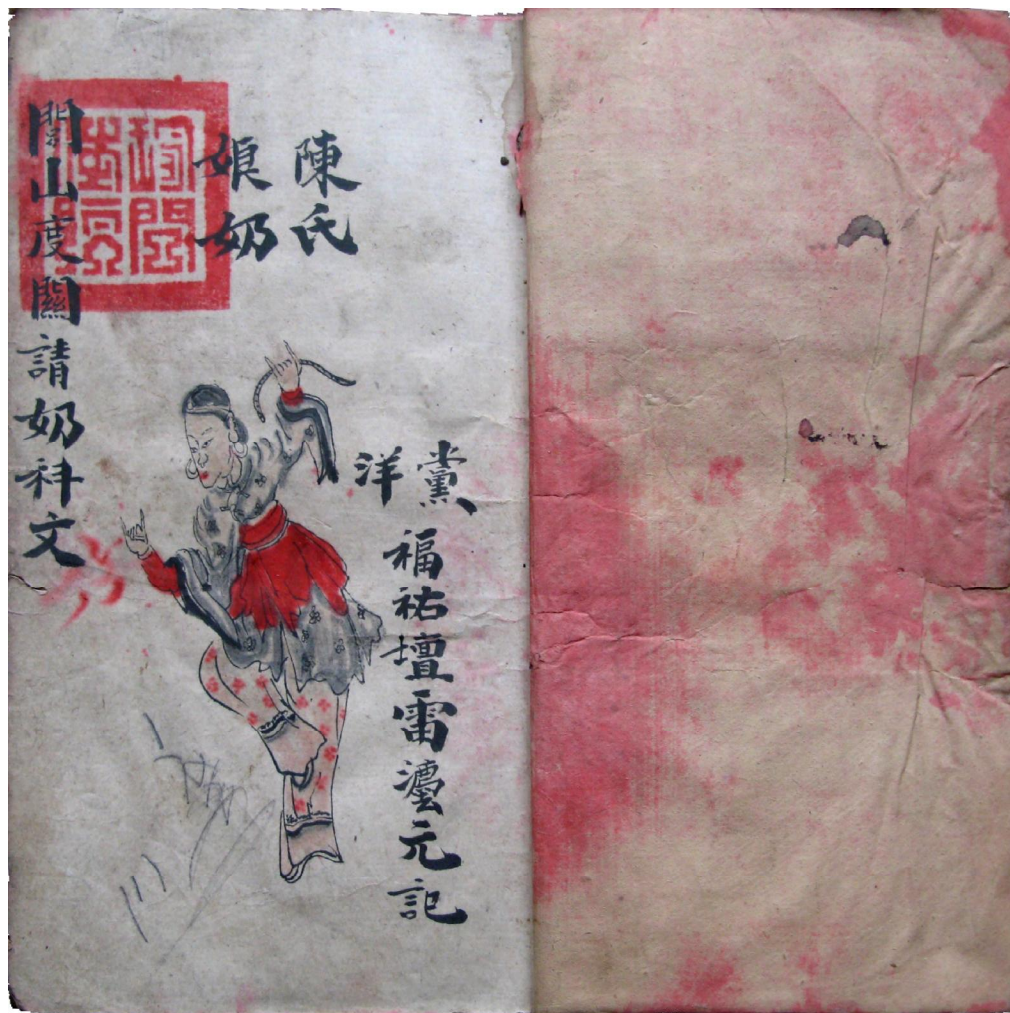 陳氏
娘奶
黨洋
福祐壇雷灋元記
閭山度關請奶科文